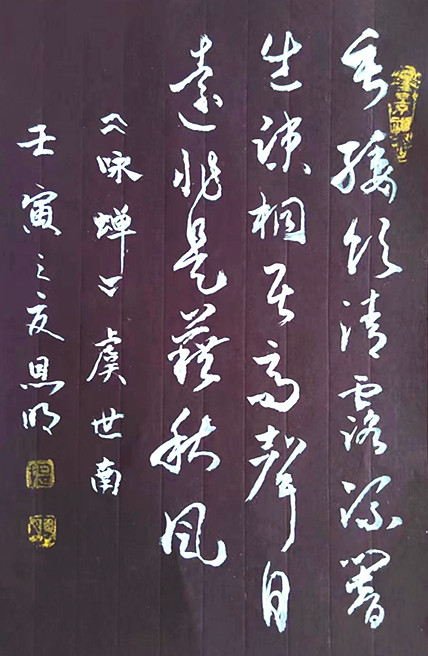 垂緌饮清露流響
出疎桐居高聲自
遠非是藉秋風
《咏蝉》虞世南
壬寅之夏恩明